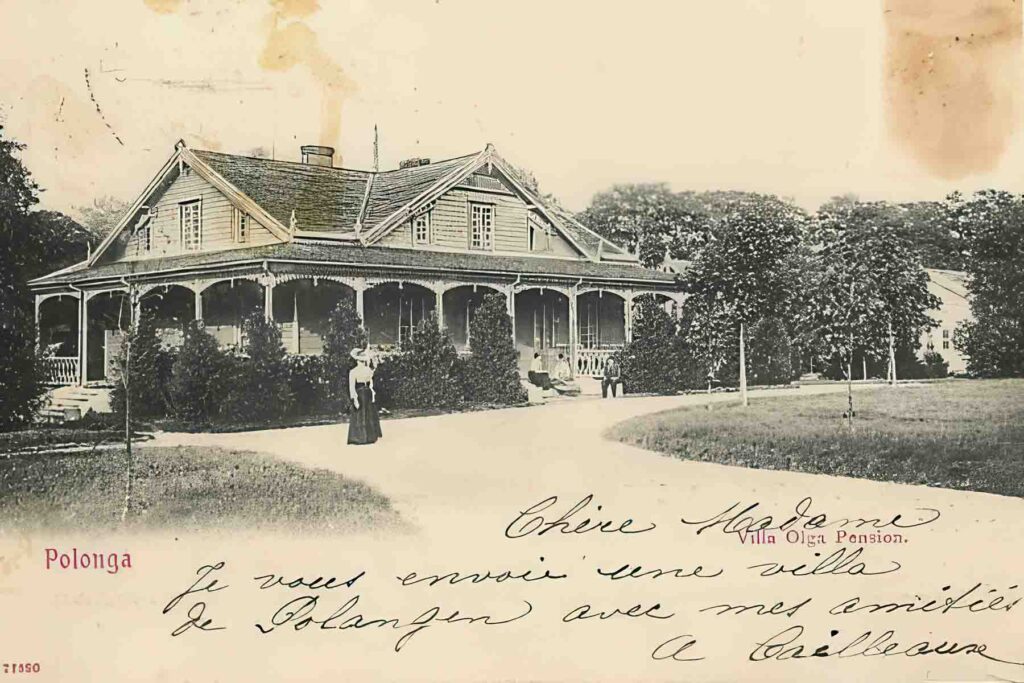 Chère Madame
Villa Olga Pension.
Polonga
Je vous envoie une villa
de Polangen avec mes amitiés
A Cailleaux
71550